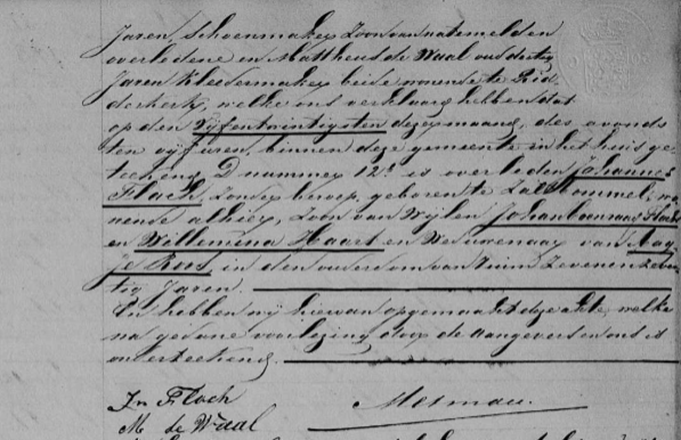 Jaren, Schoenmaker Zoon van natemelden
overledene en Mattheus de Waal oud dertig
Jaren Kleedermaker beide wonende te Rid-
derkerk, welke ons verklaard hebben dat
op den Vyfentwintigsten dezer maand, des avonds
ten vyf uren, binnen deze gemeente in het huis ge-
teekend D nummer 12 is overleden Johannes
Flach, Zonder beroep, geboren te Zalt Bommel, wo-
nende alhier, Zoon van Wylen Johan Coenraad
en Willemina Haart en Weduwenaar van Aag-
je Roos in den ouderdom van ruim Zevenenzeven-
tig Jaren.
En hebben wy hiervan opgemaakt deze akte, welke
na gedane voorlezing door de aangevers en ons is
onderteekend.
Jn Flach
M de Waal